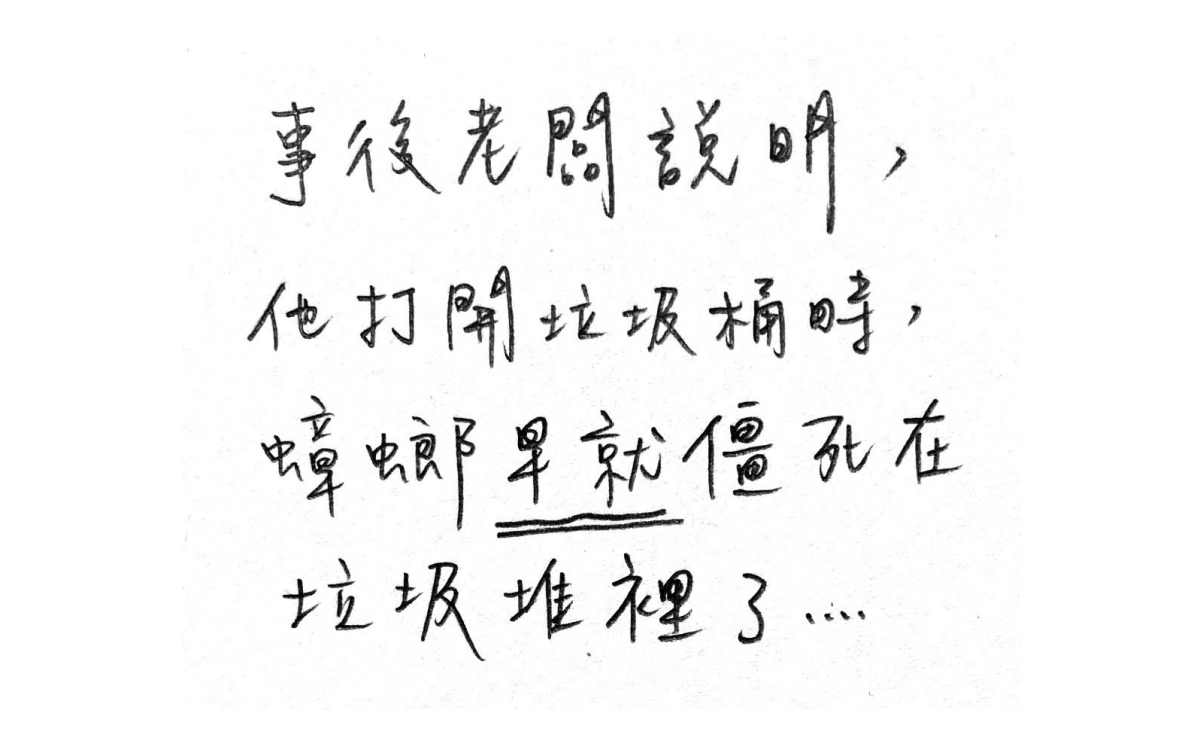 事後老闆說明，
他打開垃圾桶時，
蟑螂早就僵死在
垃圾堆裡了‥‥